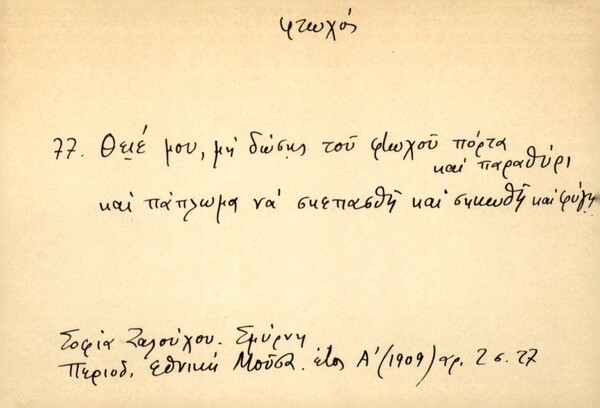 φτωχός
77. Θεέ μου, μη δώσης του φτωχού πόρτα
και παραθύρι
και πάπλωμα νά σκεπασθή και σηκωθή και φύγη
Σοφία Σαλούχου. Σμύρνη
Περιοδ. Εθνική Μούσα. έτος Α' (1909) αρ. 2 σ. 27